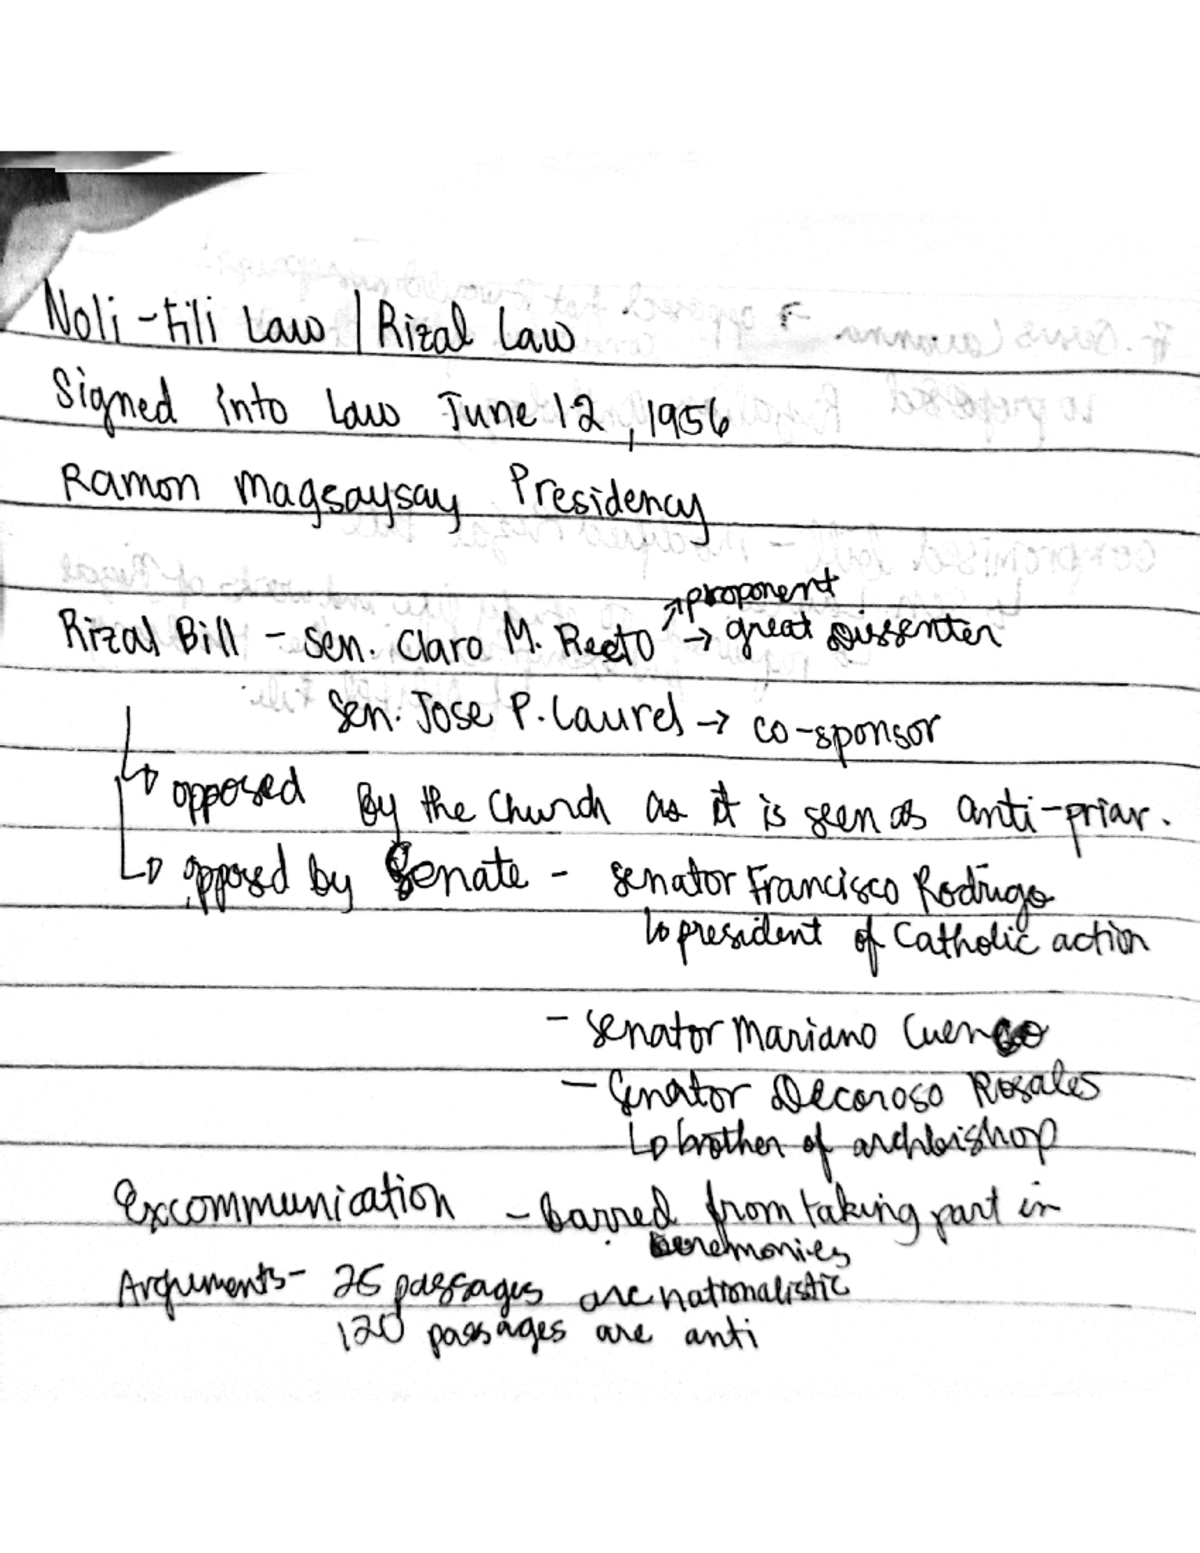 Noli-Fili Law | Rizal Law
Signed into Law June 12, 1956
Ramon Magsaysay Presidency
↗ proponent
Rizal Bill - Sen. Claro M. Recto → great Dissenter
Sen. Jose P. Laurel → co-sponsor
↳ opposed By the Church as it is seen as anti-priar.
↳ opposed by Senate - senator Francisco Rodrigo
↳ president of Catholic action
- senator Mariano Cuenco
- Senator Decoroso Rosales
↳ brother of archbishop
Excommunication - barred from taking part in
ceremonies
Arguments- 25 passages are nationalistic
120 passages are anti